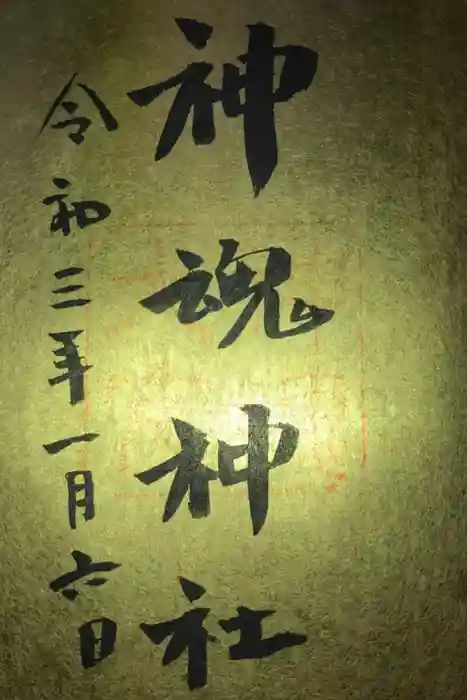 神魂神社
令和三年一月六日